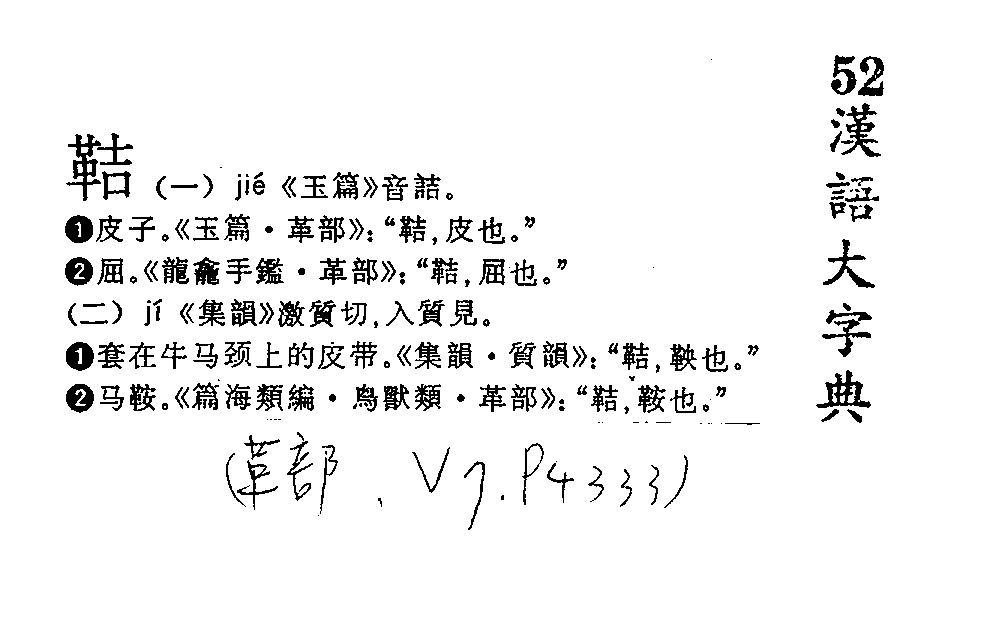 52
漢語大字典
鞊 (一) jié《玉篇》音詰。
❶皮子。《玉篇·革部》:“鞊,皮也。”
❷屈。《龍龕手鑑·革部》:“鞊,屈也。”
(二) jí《集韻》激質切,入質見。
❶套在牛马颈上的皮带。《集韻·質韻》:“鞊,鞅也。”
❷马鞍。《篇海類編·鳥獸類·革部》:“鞊,鞍也。”
(革部、V7.P4333)